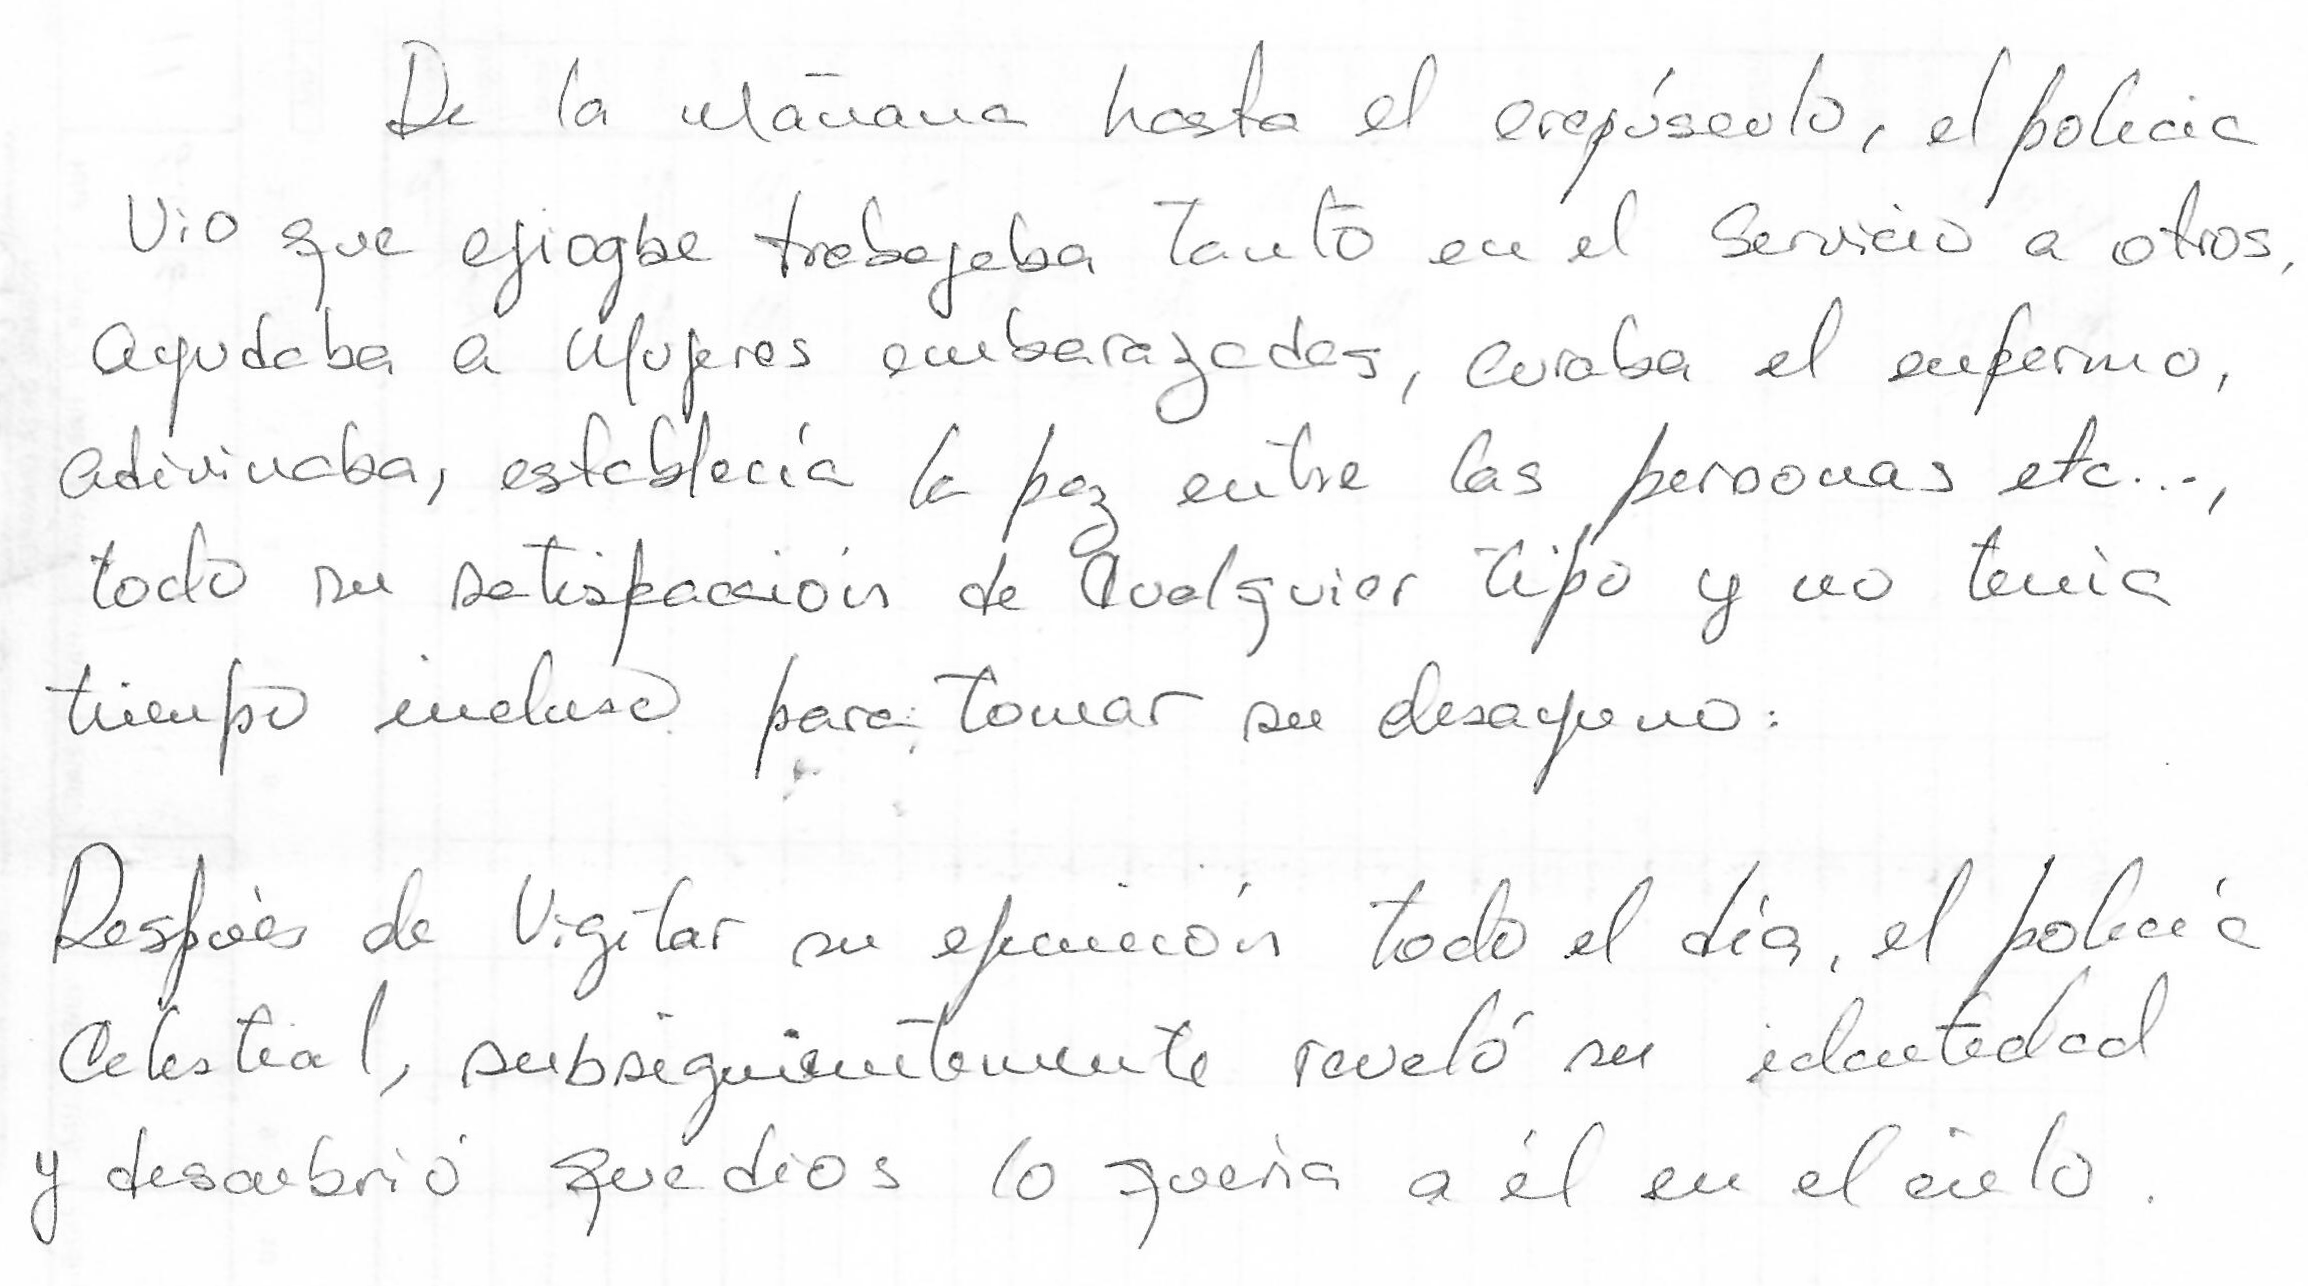 De la mañana hasta el crepúsculo, el policia
vio que ejiogbe trabajaba tanto en el servicio a otros,
ayudaba a mujeres embarazadas, curaba el enfermo,
adivinaba, establecía la paz entre las personas etc...,
todo su satisfacción de cualquier tipo y no tenia
tiempo incluso para tomar su desayuno.
Después de vigilar su ejecución todo el día, el policía
celestial, subsiguientemente reveló su identidad
y descubrió que dios lo quería a él en el cielo.